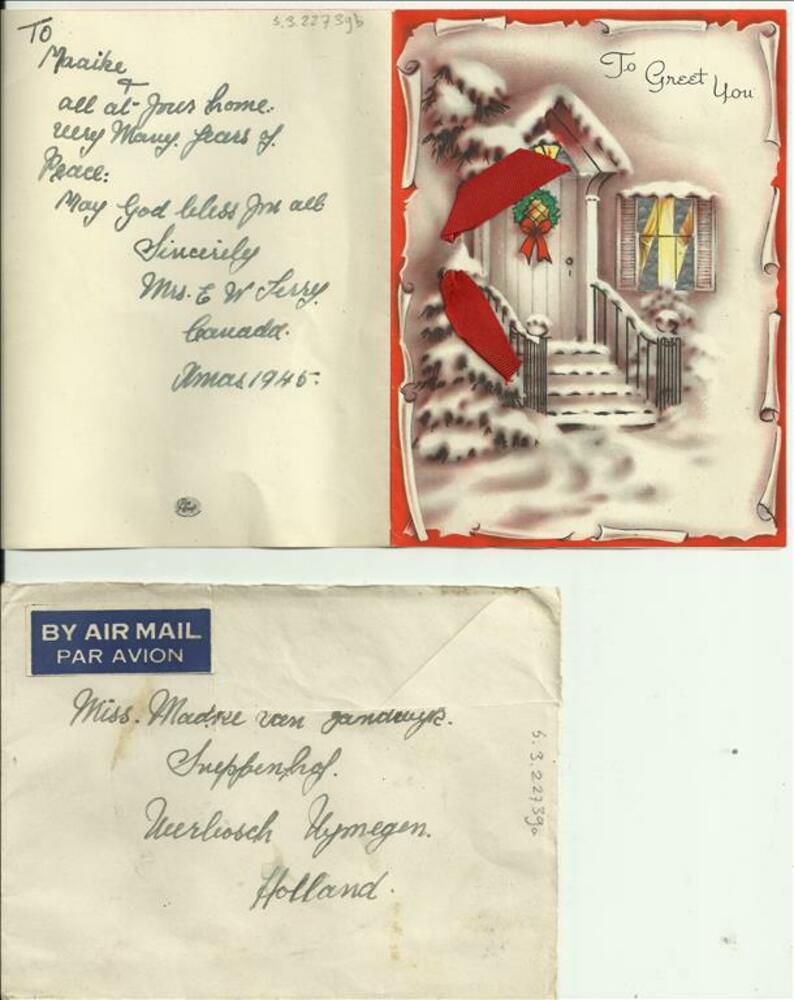 5.3.22739b
TO
Maaike
+
all at your home.
very Many years of.
Peace:
May God bless you all
Sincerely
Mrs. E W Terry.
Canada.
Xmas 1945.
To Greet You
BY AIR MAIL
PAR AVION
Miss. Madke van Zandwyk.
Holland.
5.3.22739a